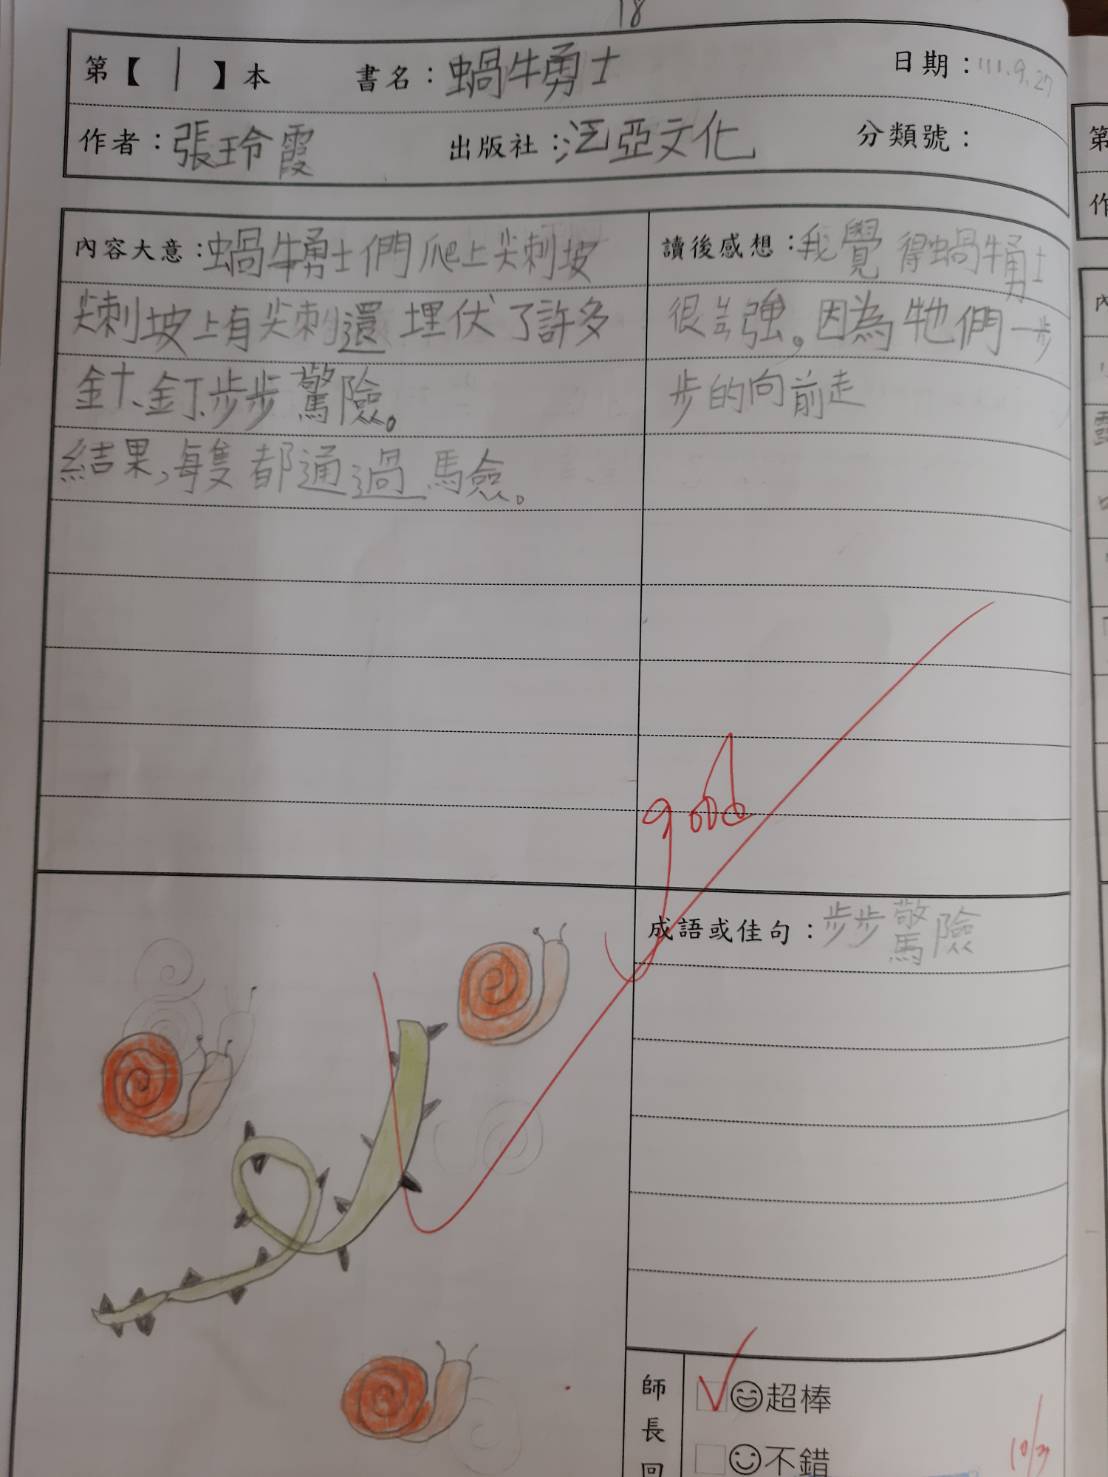 18
第【1】本 書名：蝸牛勇士 日期：111.9.27
作者：張玲霞 出版社：泛亞文化 分類號：
內容大意：蝸牛勇士們爬上尖刺坡
尖刺坡上有尖刺還埋伏了許多
針、釘、步步驚險。
結果，每隻都通過馬險。
讀後感想：我覺得蝸牛勇士
很強。因為牠們一步
步的向前走
good
成語或佳句：步步驚險
師長回
超棒
不錯
第
作
內